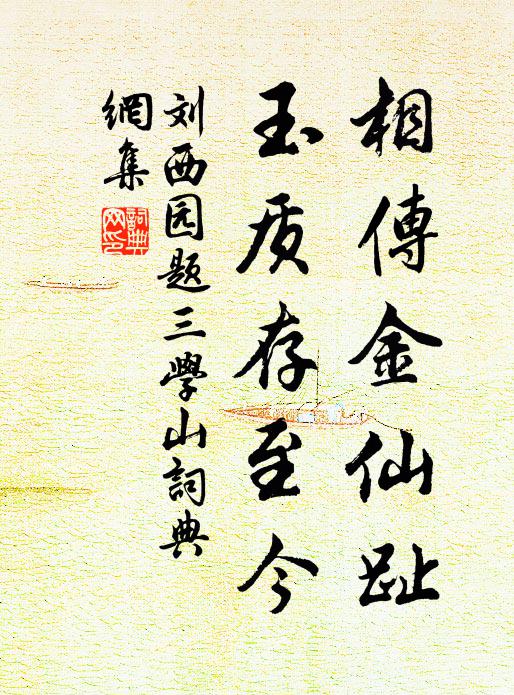 相傳金仙趾
玉质存至今
刘西园题三學山詞典
網集
詞典
网印